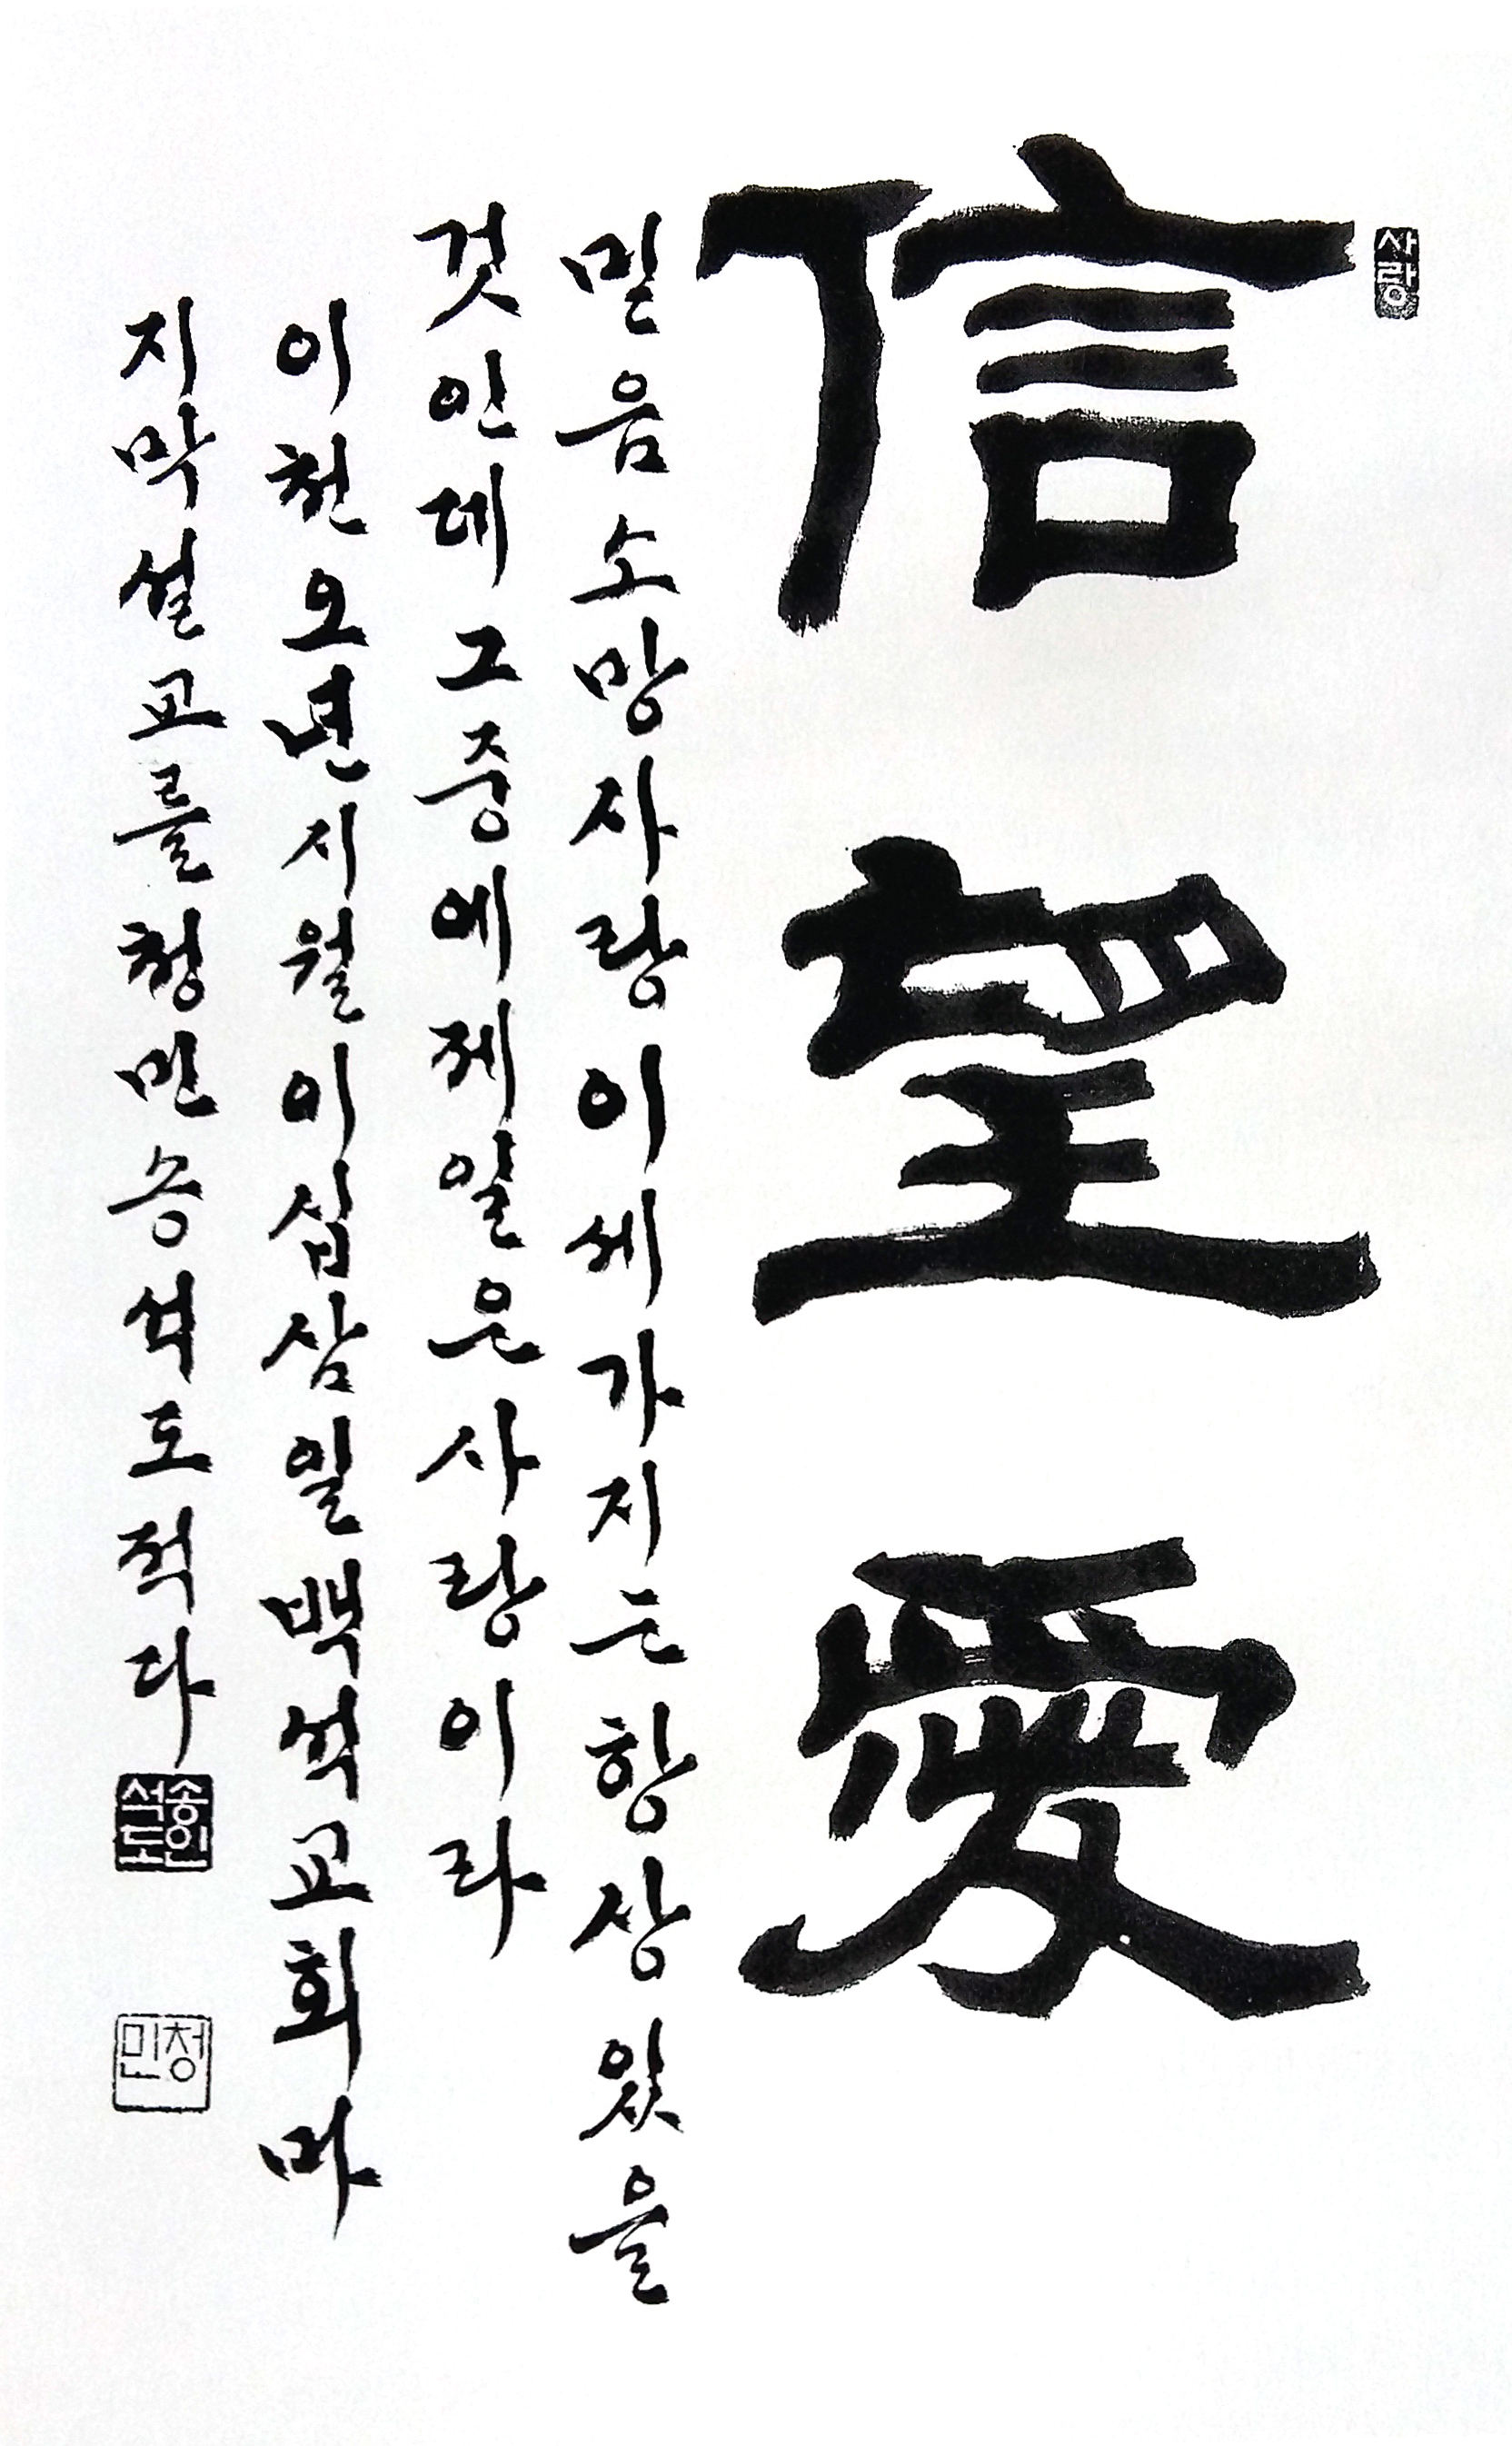 사랑
信望愛
믿음소망사랑이세가지는항상있을
것인데그중에제일은사랑이라
이천오년지월이십삼일백석교회마
지막설교를청민송석도적다
송인석도
청민